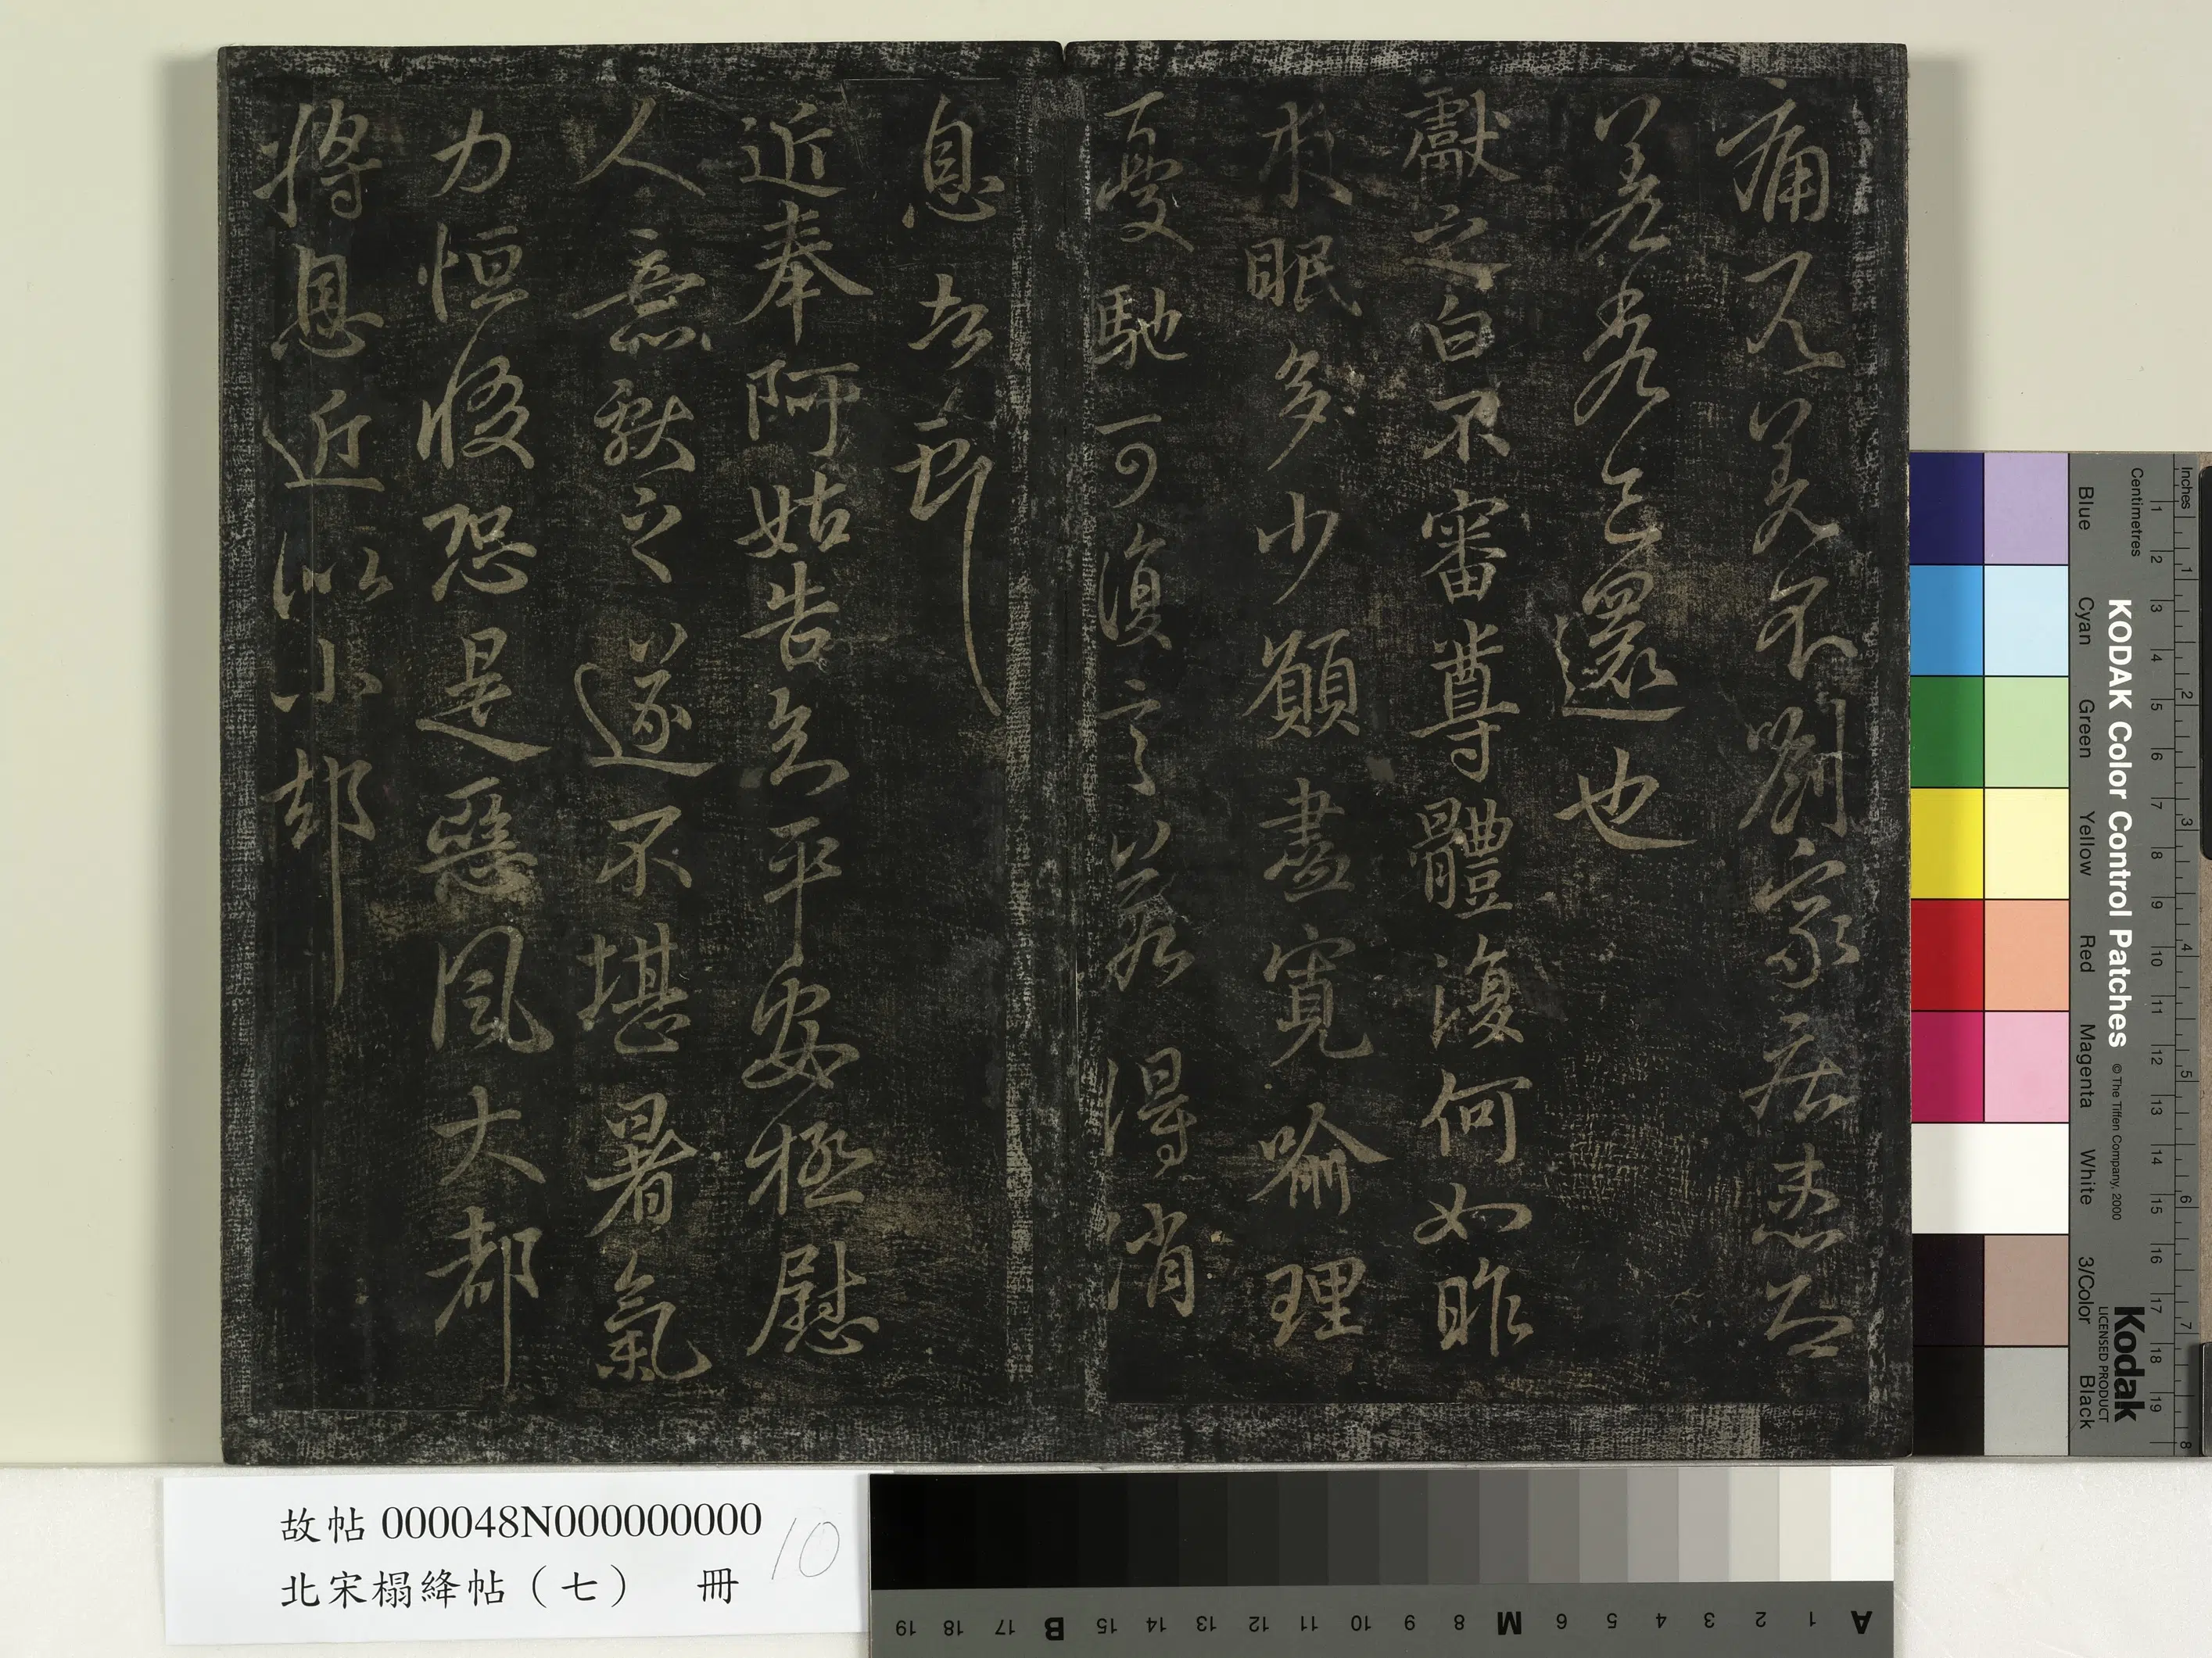 痛兄差不劉家疾患
差還也
獻之白不審尊體復何如昨
來眠多少願盡寬喻理
憂馳可復言若得消
息
近奉阿姑告知平安極慰
人意獻之遂不堪暑氣
力恒惙恐是惡風大都
將息近似小却
故帖000048N000000000
北宋榻絳帖（七） 冊
10
KODAK Color Control Patches
© The Tiffen Company, 2000
Kodak
LICENSED PRODUCT
Inches
1 2 3 4 5 6 7 8
Centimetres
1 2 3 4 5 6 7 8 9 10 11 12 13 14 15 16 17 18 19
Blue Cyan Green Yellow Red Magenta White 3/Color Black
A 1 2 3 4 5 6 M 8 9 10 11 12 13 14 15 B 17 18 19